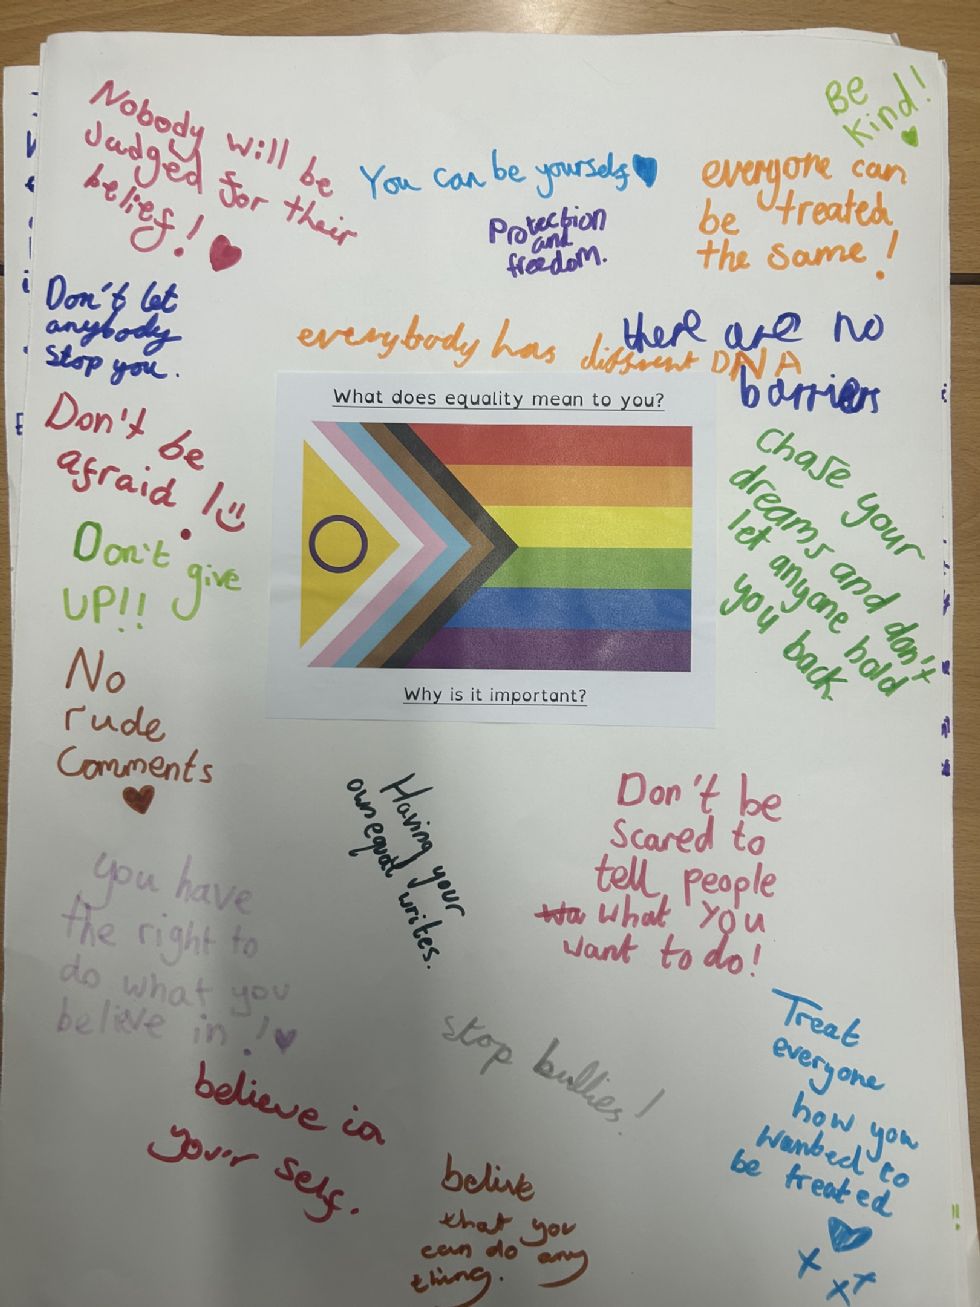 Be
Kind!
Nobody will be
Judged for their
belief!
You can be yourself
Protection
and
freedom.
everyone can
be treated
the same!
Don't let
anybody
stop you.
everybody has different DNA
there are no
barriers
What does equality mean to you?
Don't be
afraid!
Don't give
UP!!
Chase your
dreams and don't
let anyone hold
you back.
Why is it important?
No
rude
Comments
Having your
own equal writes.
Don't be
scared to
tell people
what you
want to do!
you have
the right to
do what you
believe in!
stop bullies!
Treat
everyone
how you
wanted to
be treated
x x x
believe in
your self.
belive
that you
can do any
thing.